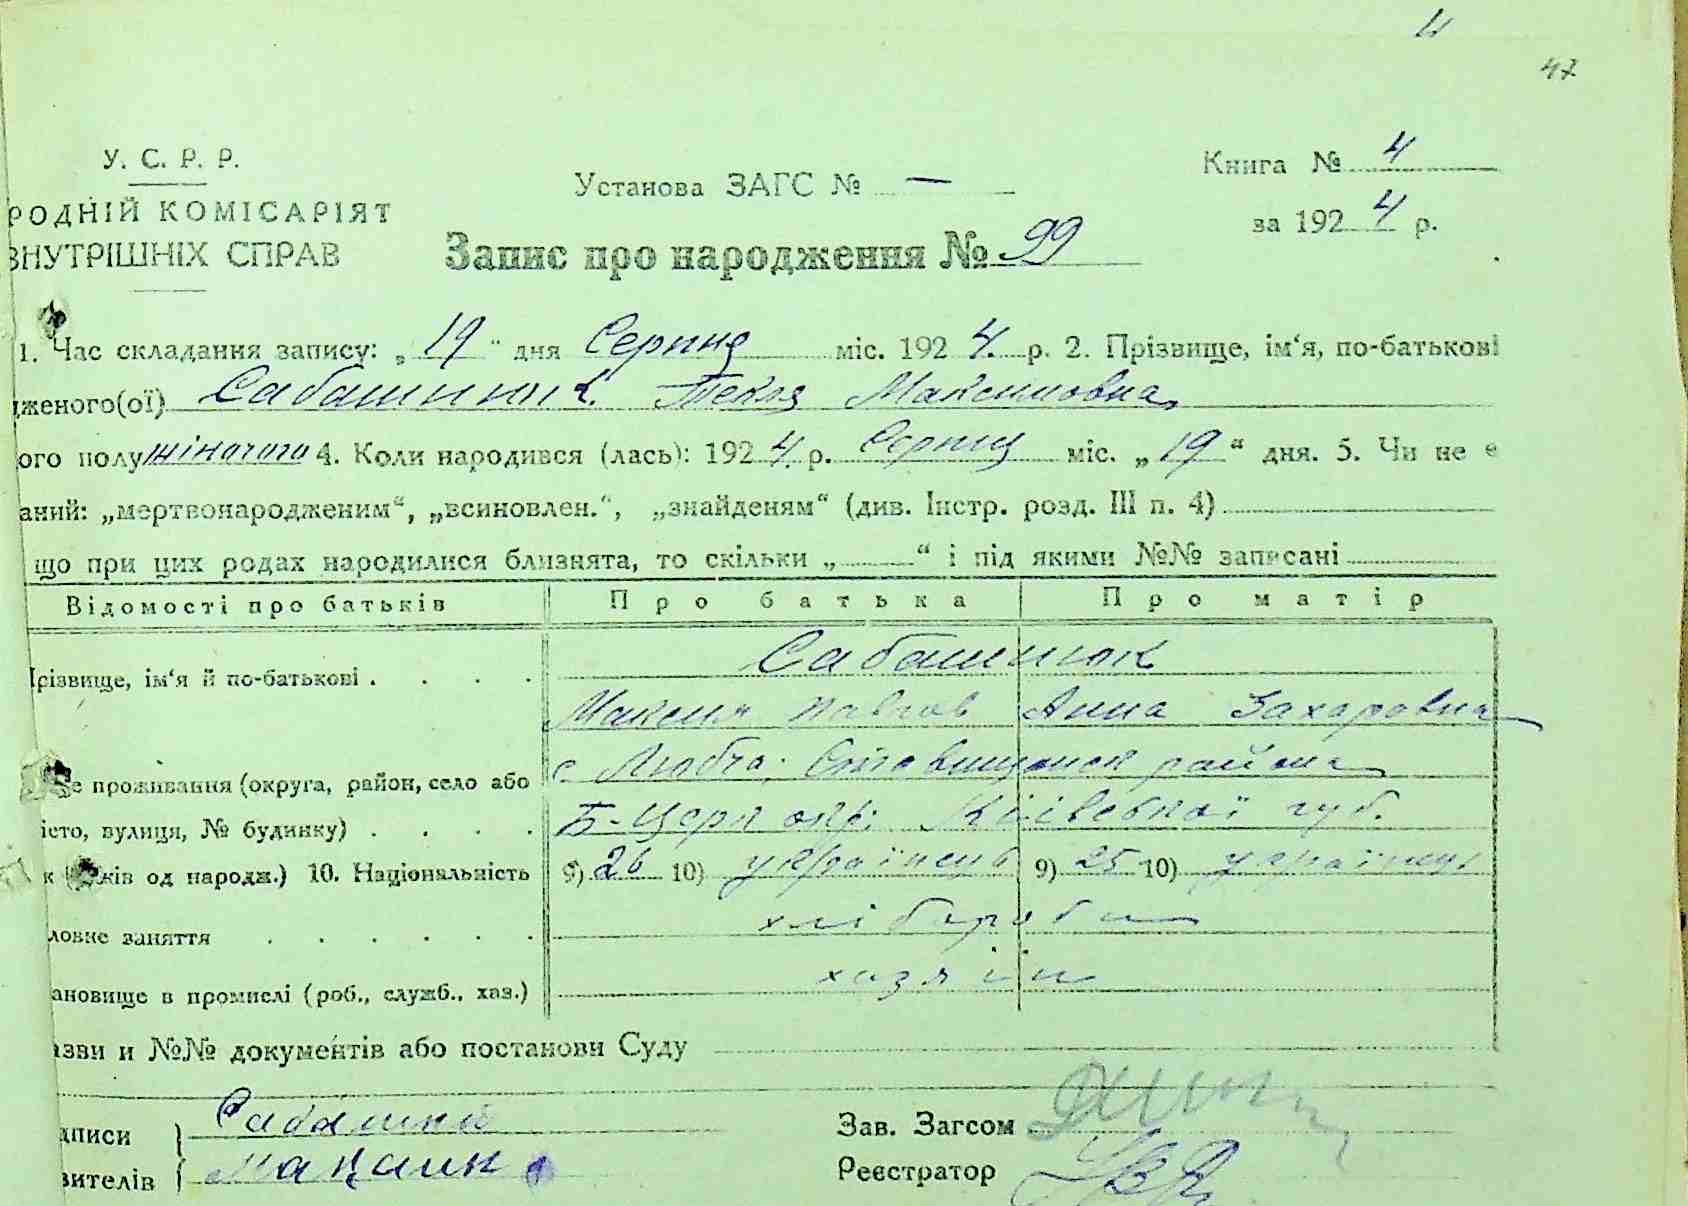 4
47
У. С. Р. Р.
РОДНІЙ КОМІСАРІЯТ
ВНУТРІШНІХ СПРАВ
Установа ЗАГС № —
Книга № 4
за 1924 р.
Запис про народження № 99
1. Час складання запису: „19" дня Серпня міс. 1924. р. 2. Прізвище, ім'я, по-батькові
дженого(ої) Сабашнюк Текля Максимовна
ого полу жіночого 4. Коли народився (лась): 1924 р. Серпня міс. „19" дня. 5. Чи не є
аний: „мертвонародженим", „всиновлен.", „знайденям" (див. Інстр. розд. III п. 4)
що при цих родах народилися близнята, то скільки „ " і під якими №№ записані
Відомості про батьків Про батька Про матір
Прізвище, ім'я й по-батькові . . . . Сабашнюк
Максим Павлов Анна Захаровна
с. Любча, Ставищанск района
е проживання (округа, район, село або
істо, вулиця, № будинку) . . . . Б-Церк окр. Київської губ.
к ків од народж.) 10. Національність 9) 26 10) українець 9) 25 10) українець
ловне заняття . . . . . . хлібороби
ановище в промислі (роб., служб., хаз.) хазяїн
азви и №№ документів або постанови Суду
дписи Сабашнюк
вителів Максим
Зав. Загсом
Реєстратор